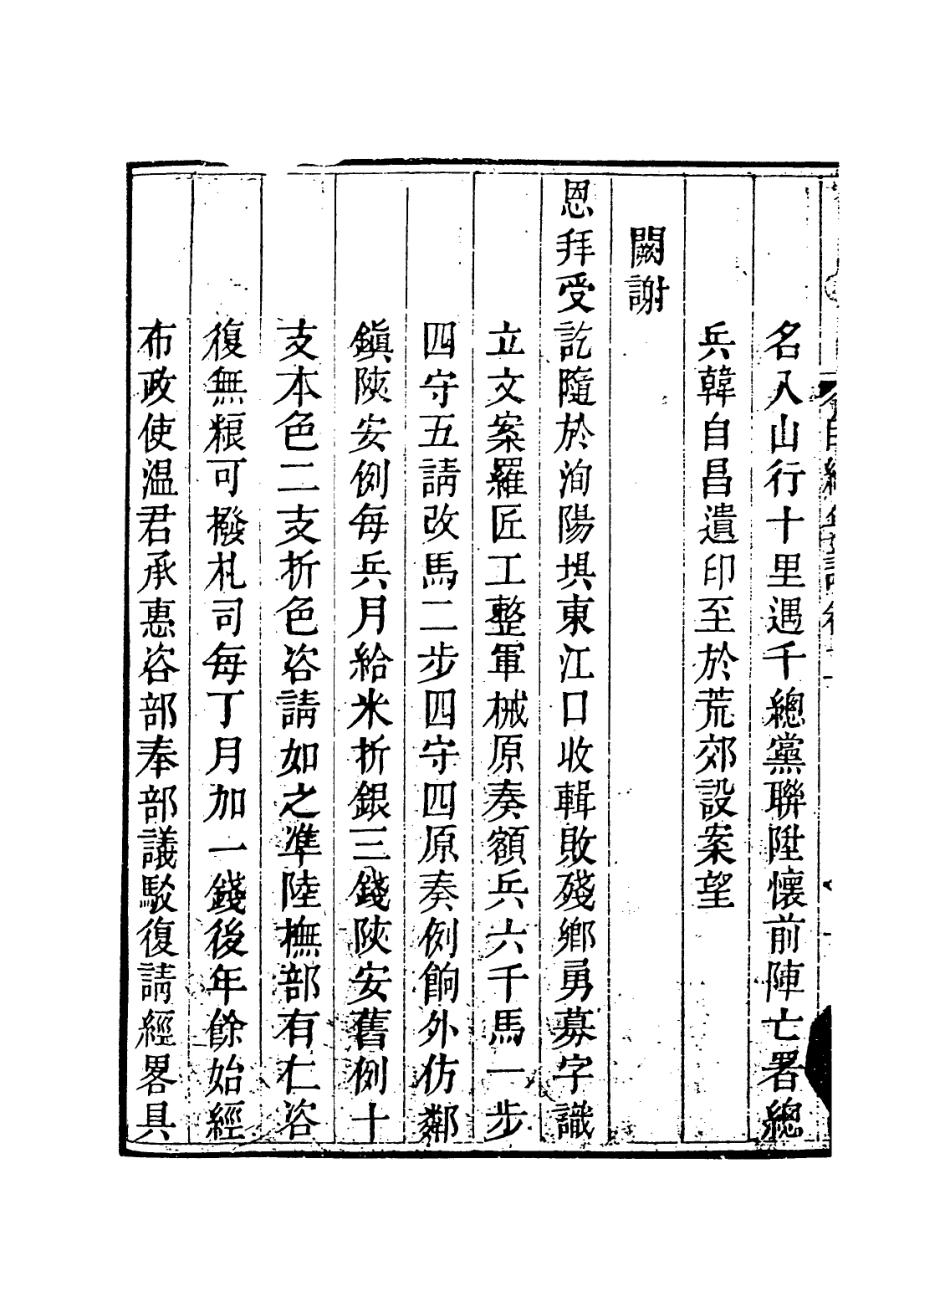 名入山行十里遇千總黨聯陞懷前陣亡署總
兵韓自昌遺印至於荒郊設案望
闕謝
恩拜受訖隨於洵陽垻東江口收輯敗殘鄉勇募字識
立文案羅匠工整軍械原奏額兵六千馬一步
四守五請改馬二步四守四原奏例餉外仿鄰
鎮陝安例每兵月給米折銀三錢陝安舊例十
支本色二支折色咨請如之準陸撫部有仁咨
復無粮可撥札司每丁月加一錢後年餘始經
布政使温君承惠咨部奉部議駁復請經畧具